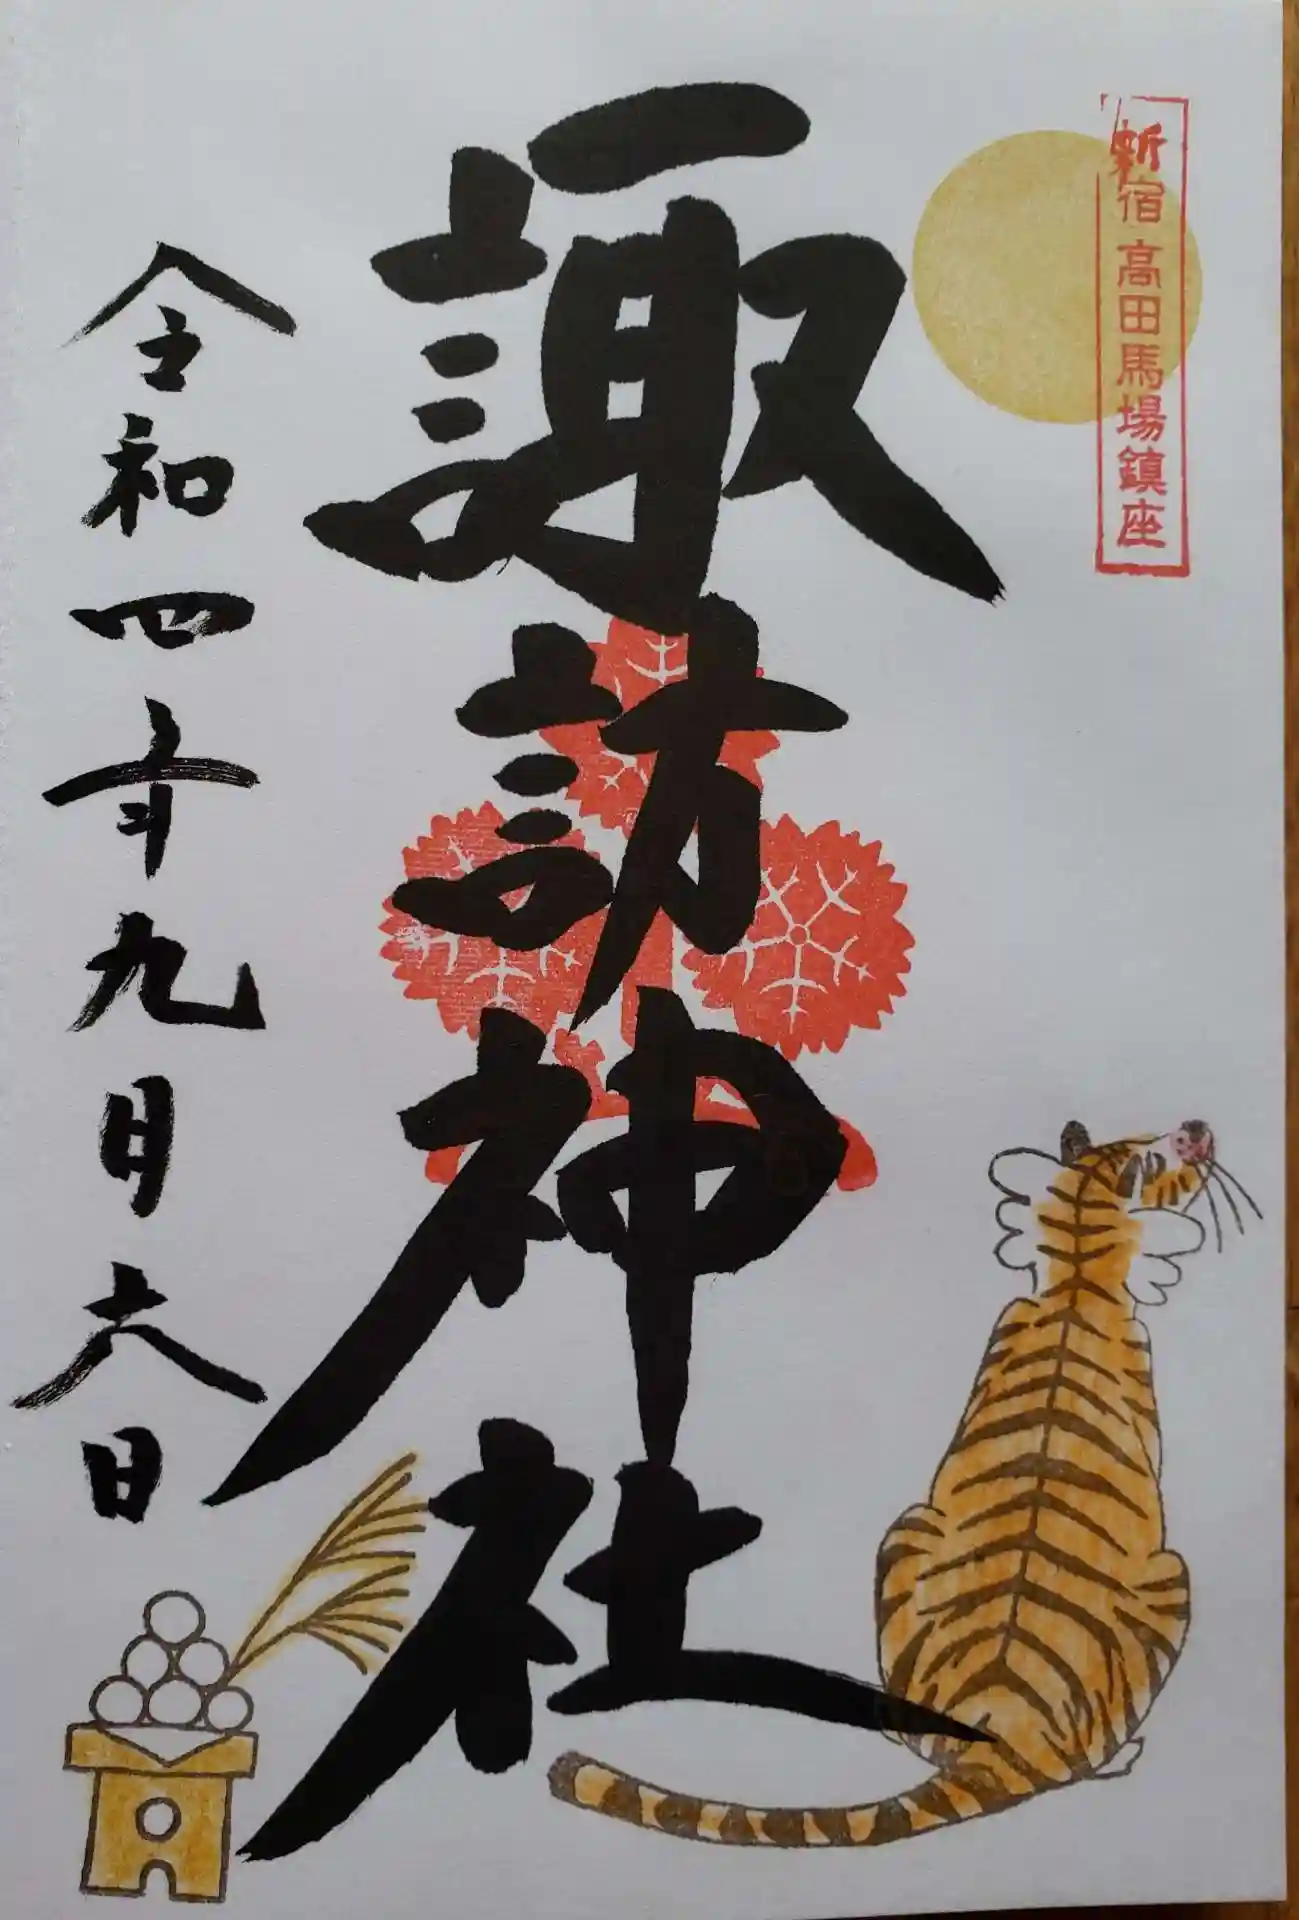 新宿高田馬場鎮座
諏訪神社
令和四年九月六日